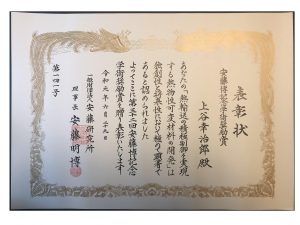 表彰状
安藤博記念学術奨励賞
上谷幸治郎殿
あなたの「熱輸送の積極制御を実現
する熱物性可変材料の開発」は
独創性と将来性において極めて顕著で
あると認められました
よってここに第三十二回安藤博記念
学術奨励賞を贈り表彰いたします
令和元年六月二十九日
一般財団法人 安藤研究所
理事長 安藤明博
第一四一号